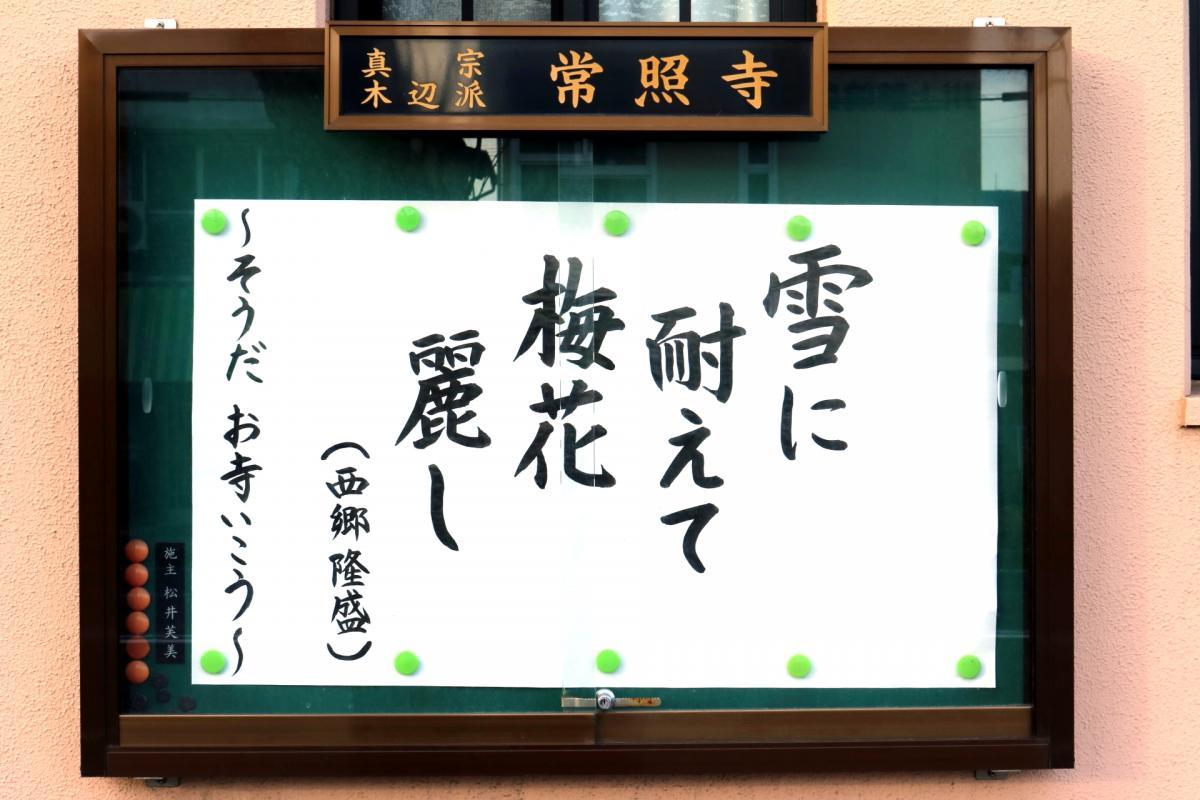 真宗
木辺派
常照寺
雪に
耐えて
梅花
麗し
（西郷隆盛）
〜そうだ お寺いこう〜
施主 松井芙美